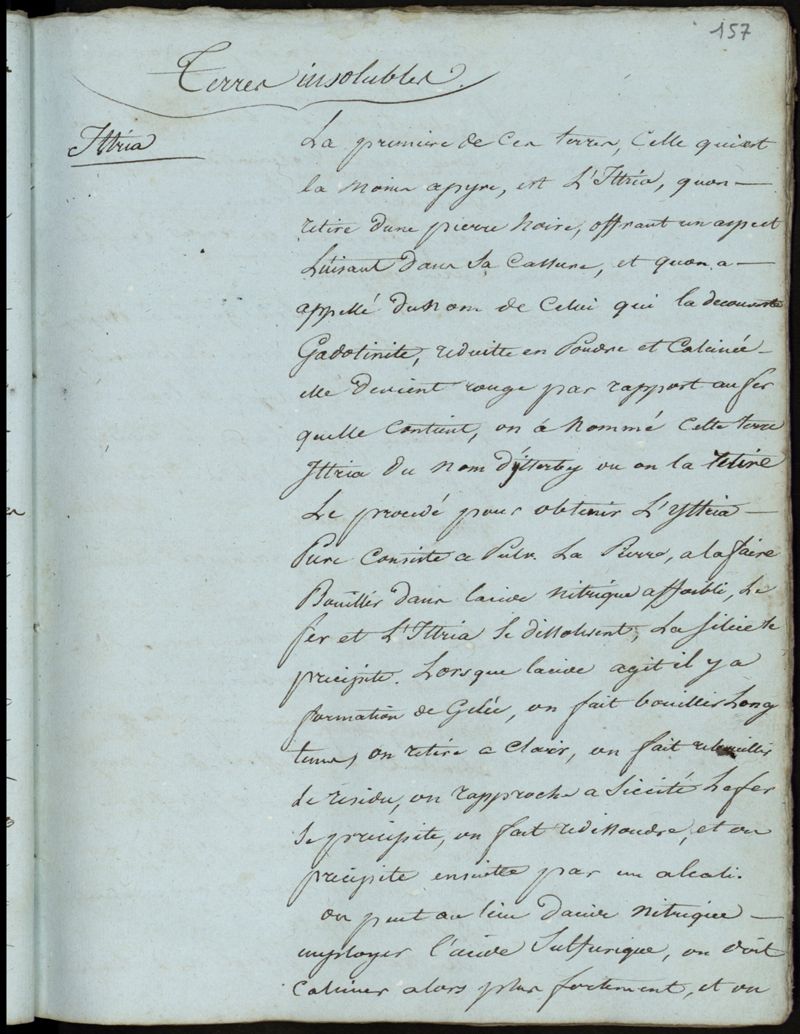 157
Terres insolubles.
Ittria
La premiere de ces terres, celle qui est
la moins apyre, est L'Ittria, quon
retire dune pierre noire, offrant un aspect
Luisant dans sa cassure, et quon a
appellé du nom de celui qui la decouverte
Gadolinite, reduitte en Poudre et calcinée
elle devient rouge par rapport au fer
quelle contient, on a nommé cette terre
Ittria du nom d'ytterby ou on la retiré
Le procedé pour obtenir L'yttria
Pure consiste a Pulv. La Pierre, a la faire
Bouillir dans lacide nitrique affoibli, Le
fer et L'Ittria se dissolvent, La silice se
precipite. Lorsque lacide agit il y a
formation de Gelée, on fait bouillir Long
tems, on retire a clair, on fait rebouillir
le residu, on rapproche a siccité Le fer
se precipite, on fait redissoudre, et on
precipite ensuitte par un alcali.
on peut au lieu dacide nitrique
employer l'acide sulfurique, on doit
calciner alors plus fortement, et on